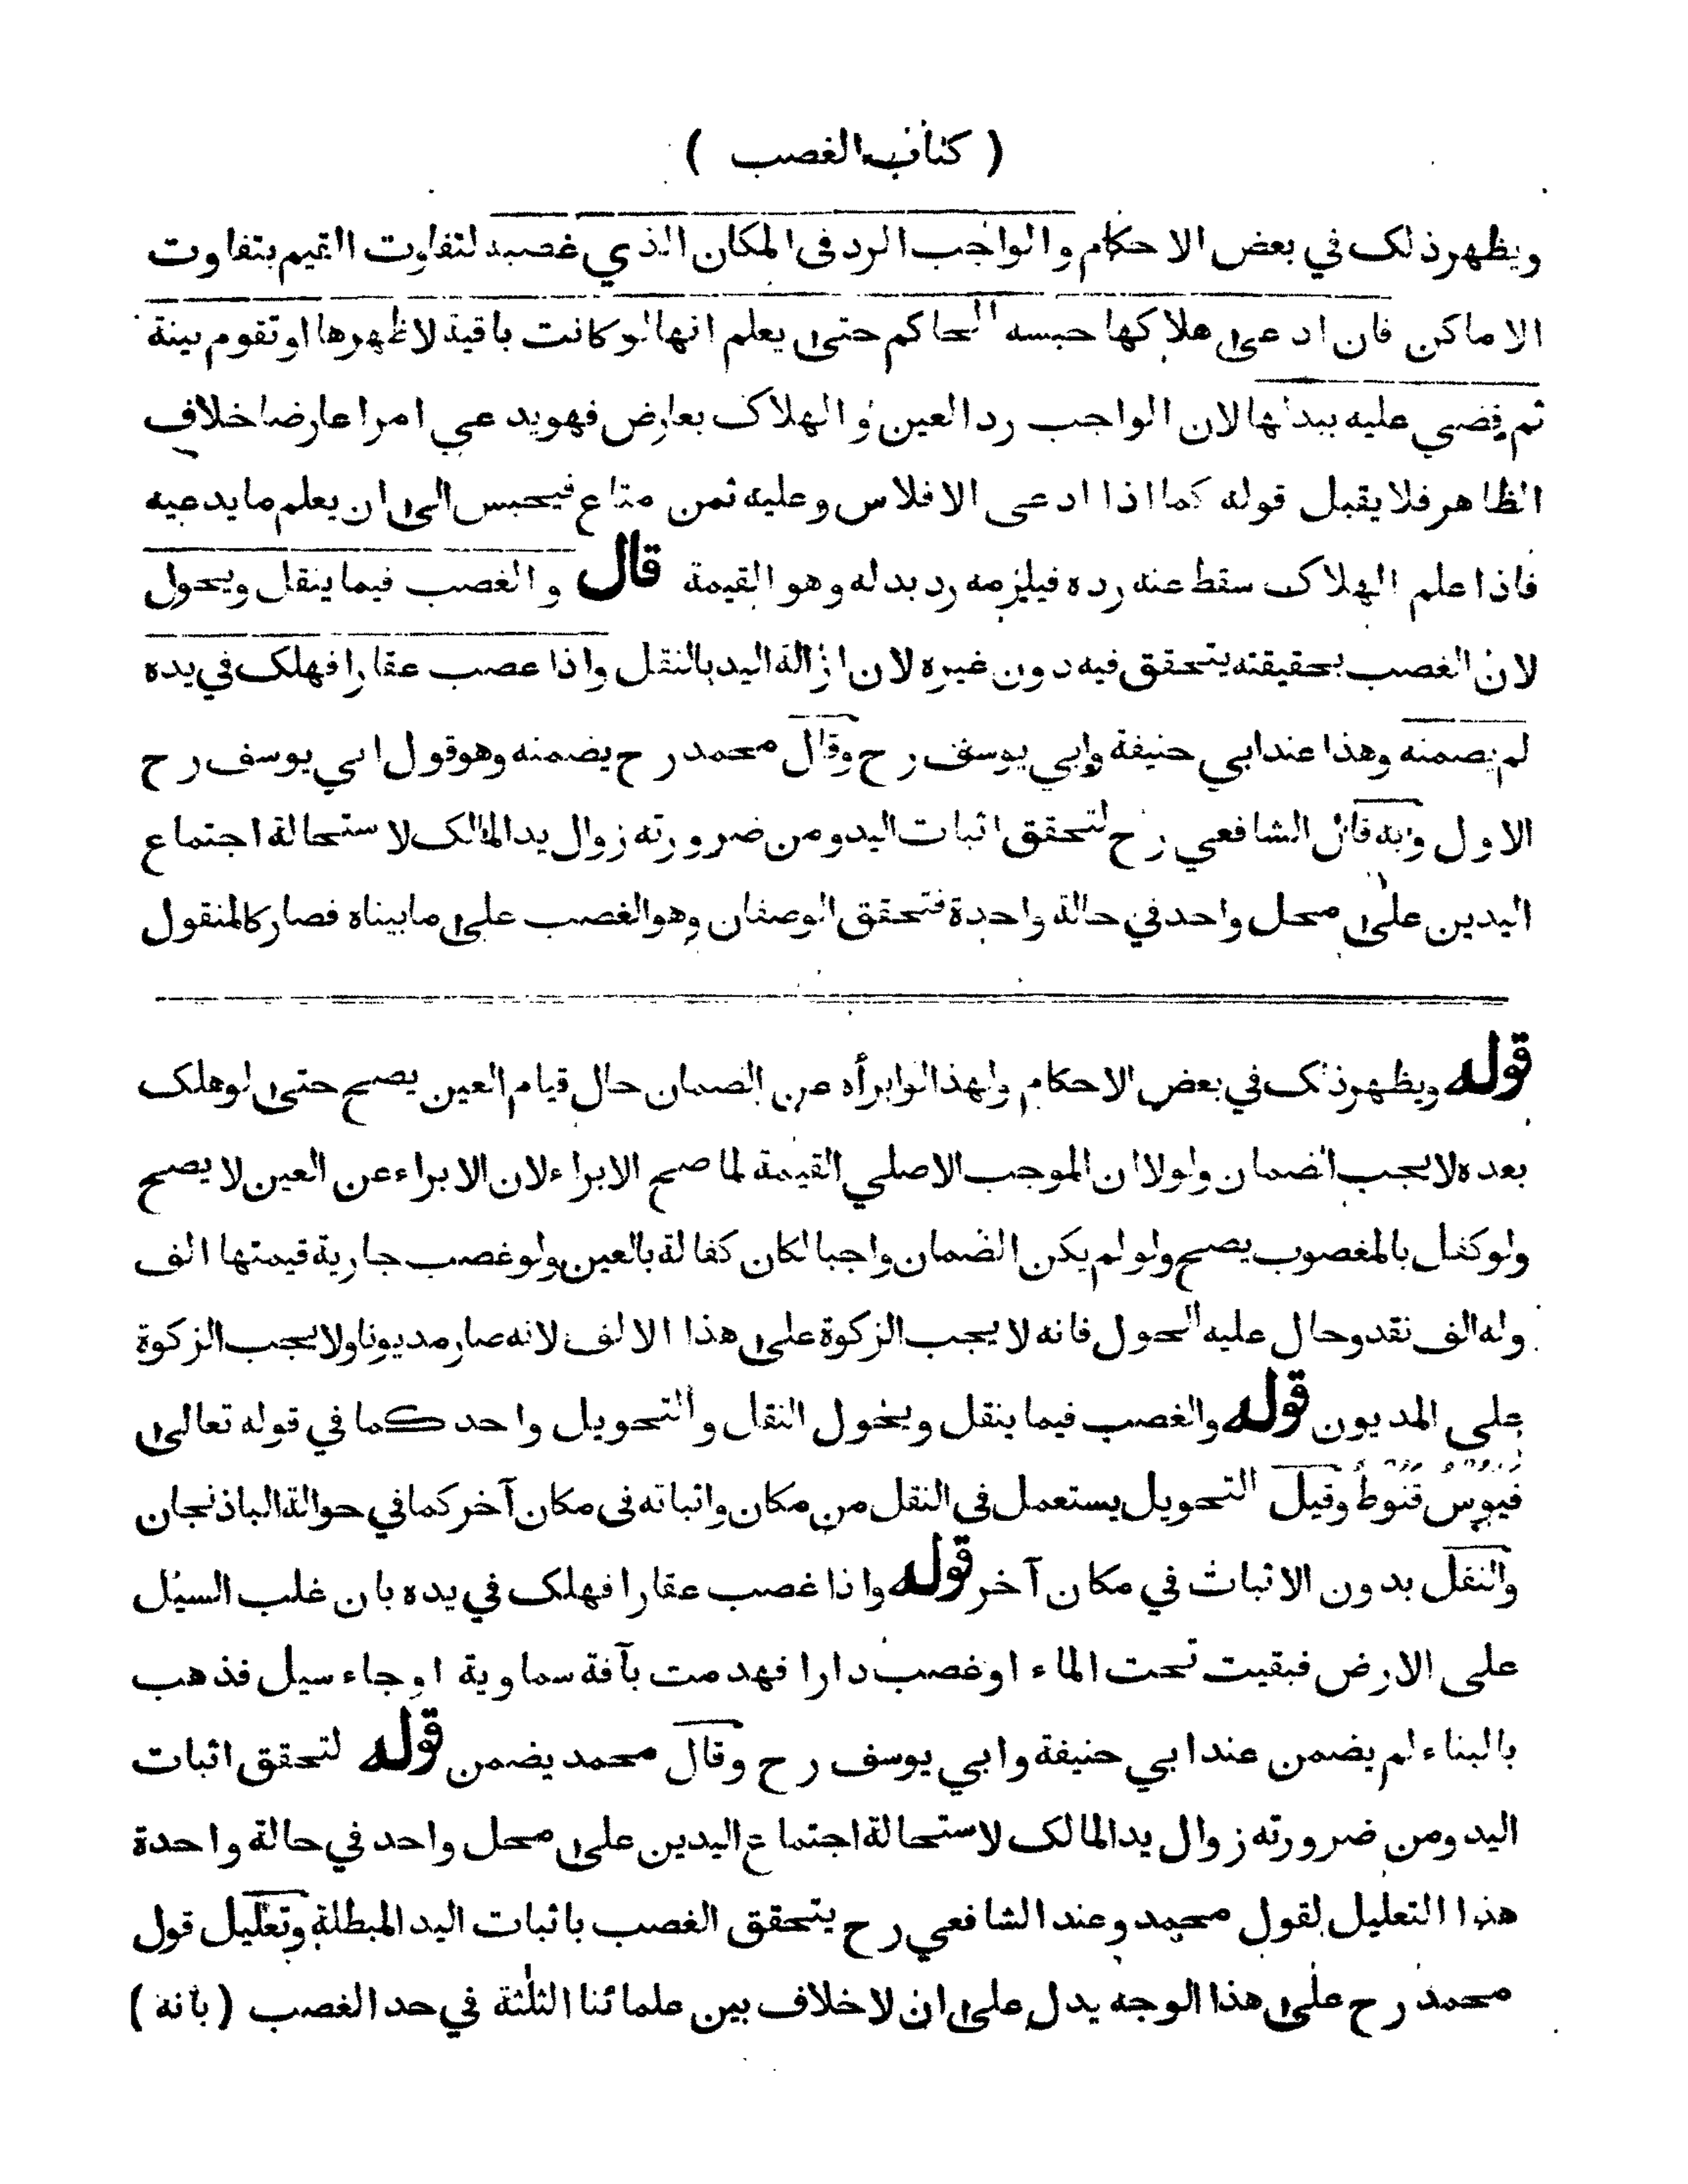 ( كتاب الغصب )
ويظهر ذلك في بعض الاحكام والواجب الرد في المكان الذي غصبه لتفاوت القيم بتفاوت
الاماكن فان ادعى هلاكها حبسه الحاكم حتى يعلم انها لو كانت باقية لاظهرها او تقوم بينة
ثم قضى عليه ببدلها لان الواجب رد العين و الهلاك بعارض فهو يدعي امرا عارضا خلاف
الظاهر فلا يقبل قوله كما اذا ادعى الافلاس وعليه ثمن متاع فيحبس الى ان يعلم ما يدعيه
فاذا علم الهلاك سقط عنه رده فيلزمه رد بدله وهو القيمة قال و الغصب فيما ينقل ويحول
لان الغصب بحقيقته يتحقق فيه دون غيره لان ازالة اليد بالنقل واذا غصب عقارا فهلك في يده
لم يضمنه وهذا عند ابي حنيفة وابي يوسف رح وقال محمد رح يضمنه وهو قول ابي يوسف رح
الاول وبه قال الشافعي رح لتحقق اثبات اليد ومن ضرورته زوال يد المالك لاستحالة اجتماع
اليدين على محل واحد في حالة واحدة فتحقق الوصفان وهو الغصب على ما بيناه فصار كالمنقول
قوله ويظهر ذلك في بعض الاحكام ولهذا لو ابرأه عن الضمان حال قيام العين يصح حتى لو هلك
بعده لا يجب الضمان ولولا ان الموجب الاصلي القيمة لما صح الابراء لان الابراء عن العين لا يصح
ولو كفل بالمغصوب يصح ولو لم يكن الضمان واجبا لكان كفالة بالعين ولو غصب جارية قيمتها الف
وله الف نقد وحال عليه الحول فانه لا يجب الزكوة على هذا الالف لانه صار مديونا ولا يجب الزكوة
على المديون قوله والغصب فيما ينقل ويحول النقل والتحويل واحد كما في قوله تعالى
فَيَؤُسٌ قَنُوطٌ وقيل التحويل يستعمل في النقل من مكان واثباته في مكان آخر كما في حوالة الباذنجان
والنقل بدون الاثبات في مكان آخر قوله واذا غصب عقارا فهلك في يده بان غلب السيل
على الارض فبقيت تحت الماء او غصب دارا فهدمت بآفة سماوية او جاء سيل فذهب
بالبناء لم يضمن عند ابي حنيفة وابي يوسف رح وقال محمد يضمن قوله لتحقق اثبات
اليد ومن ضرورته زوال يد المالك لاستحالة اجتماع اليدين على محل واحد في حالة واحدة
هذا التعليل لقول محمد وعند الشافعي رح يتحقق الغصب باثبات اليد المبطلة وتعليل قول
محمد رح على هذا الوجه يدل على ان لا خلاف بين علمائنا الثلثة في حد الغصب ( بانه )